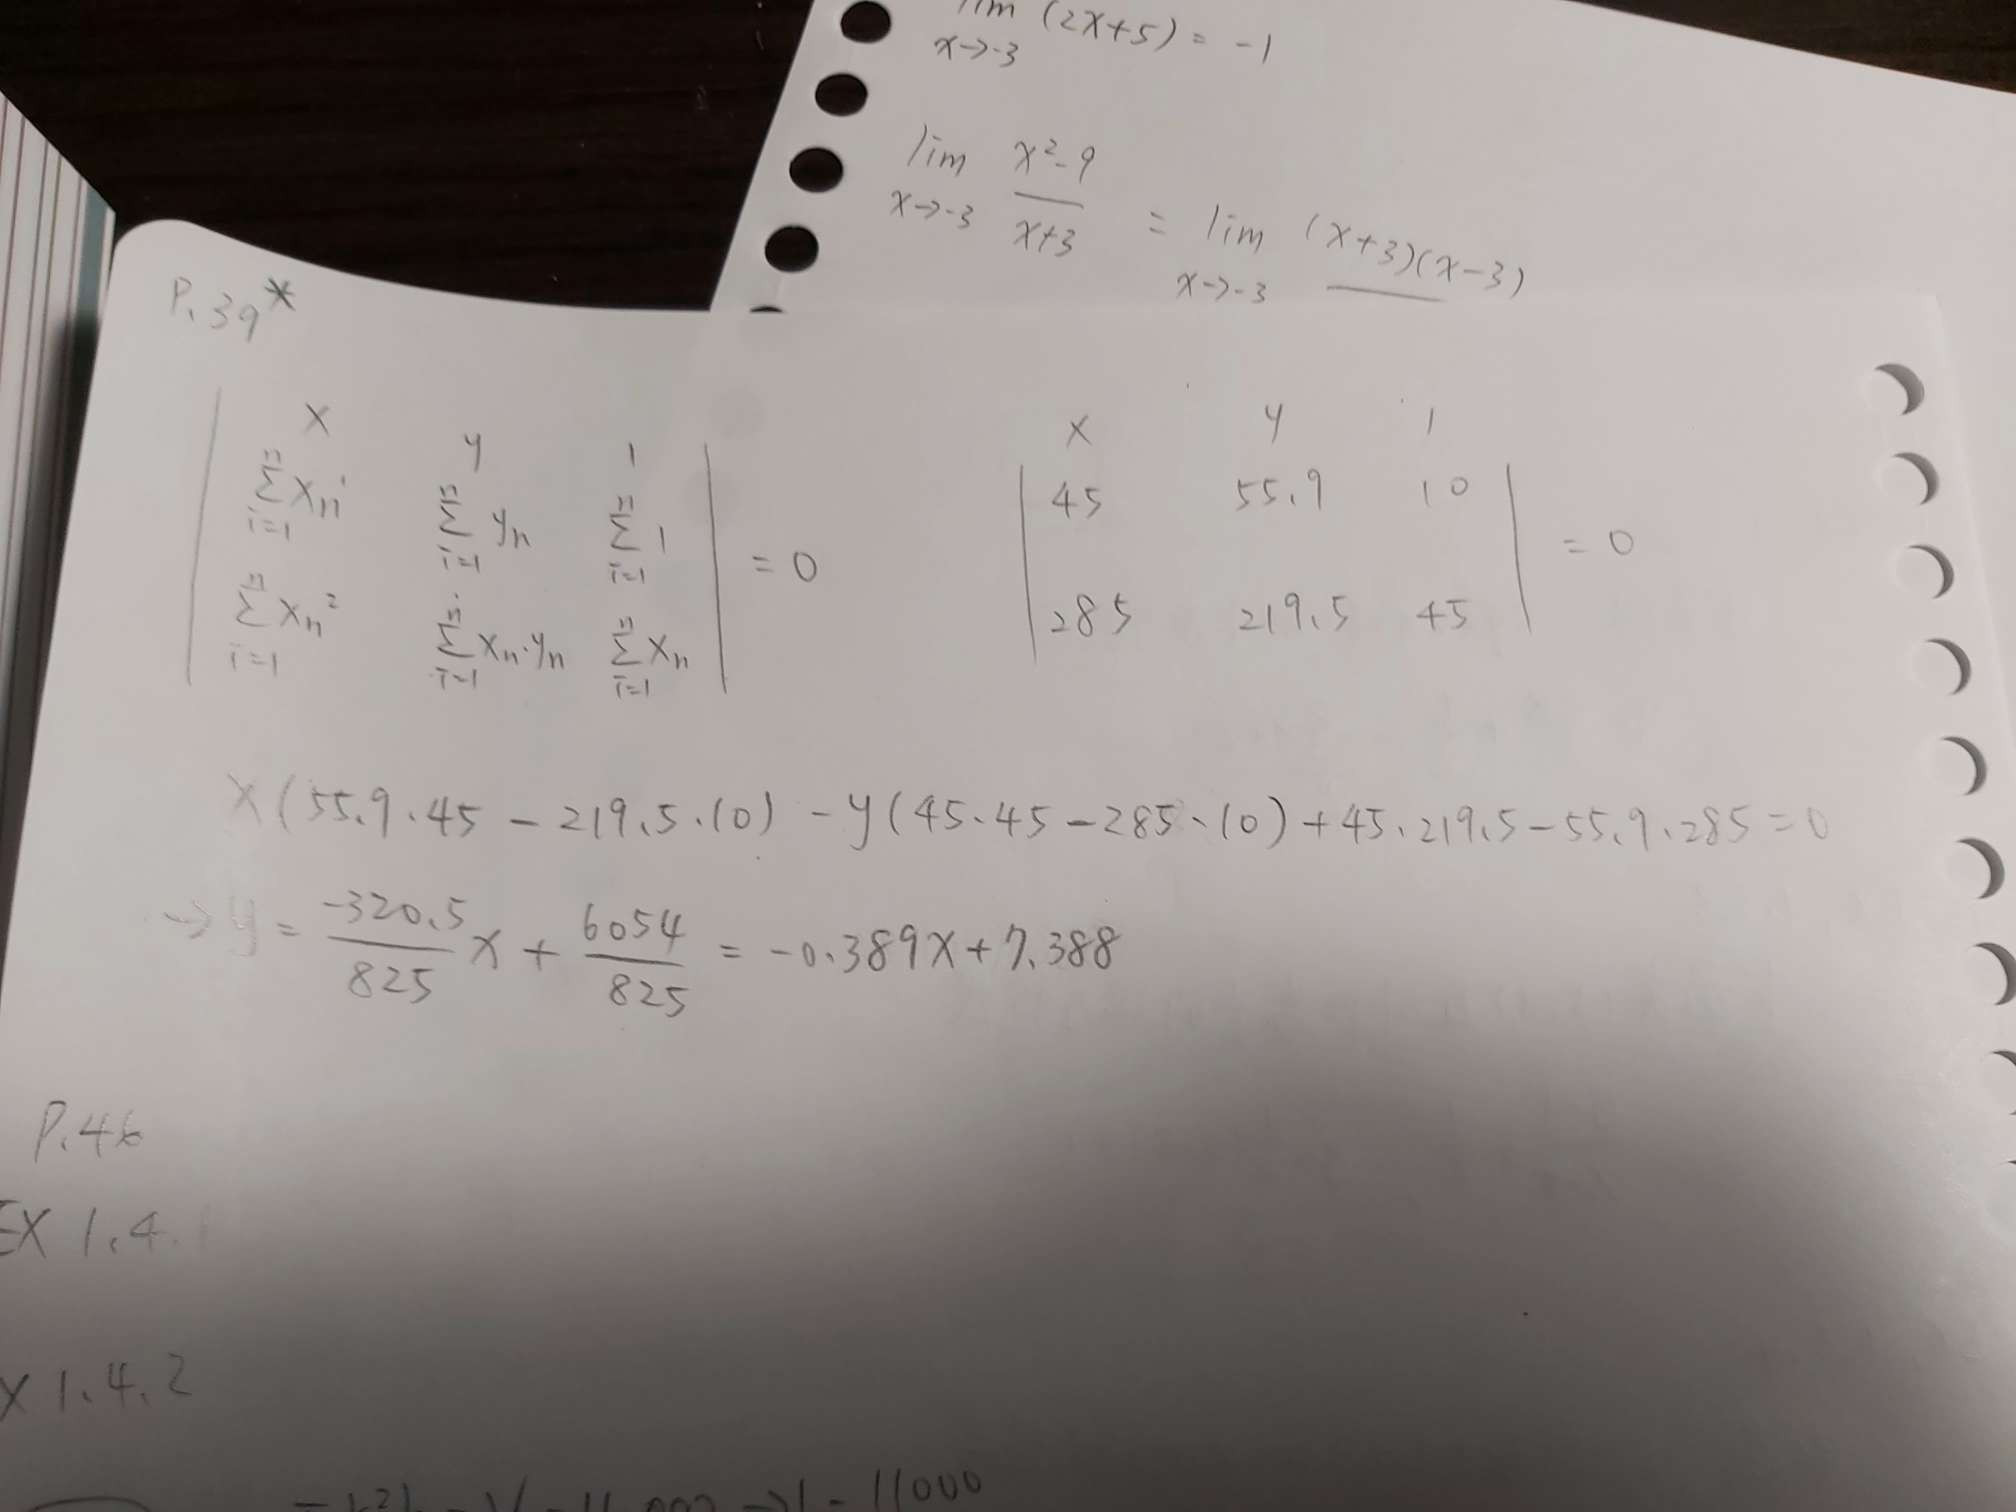 lim (2x+5) = -1
x→-3
lim x²-9 = lim (x+3)(x-3)
x→-3 x+3 x→-3
P.39*
x y 1
n∑i=1 xn n∑i=1 yn n∑i=1 1 = 0
n∑i=1 xn² n∑i=1 xn·yn n∑i=1 xn
x y 1
45 55.9 10 = 0
285 219.5 45
x(55.9·45 - 219.5·10) - y(45·45 - 285·10) + 45·219.5 - 55.9·285 = 0
→ y = -320.5/825 x + 6054/825 = -0.389x + 7.388
P.46
EX 1.4.1
X 1.4.2
11000